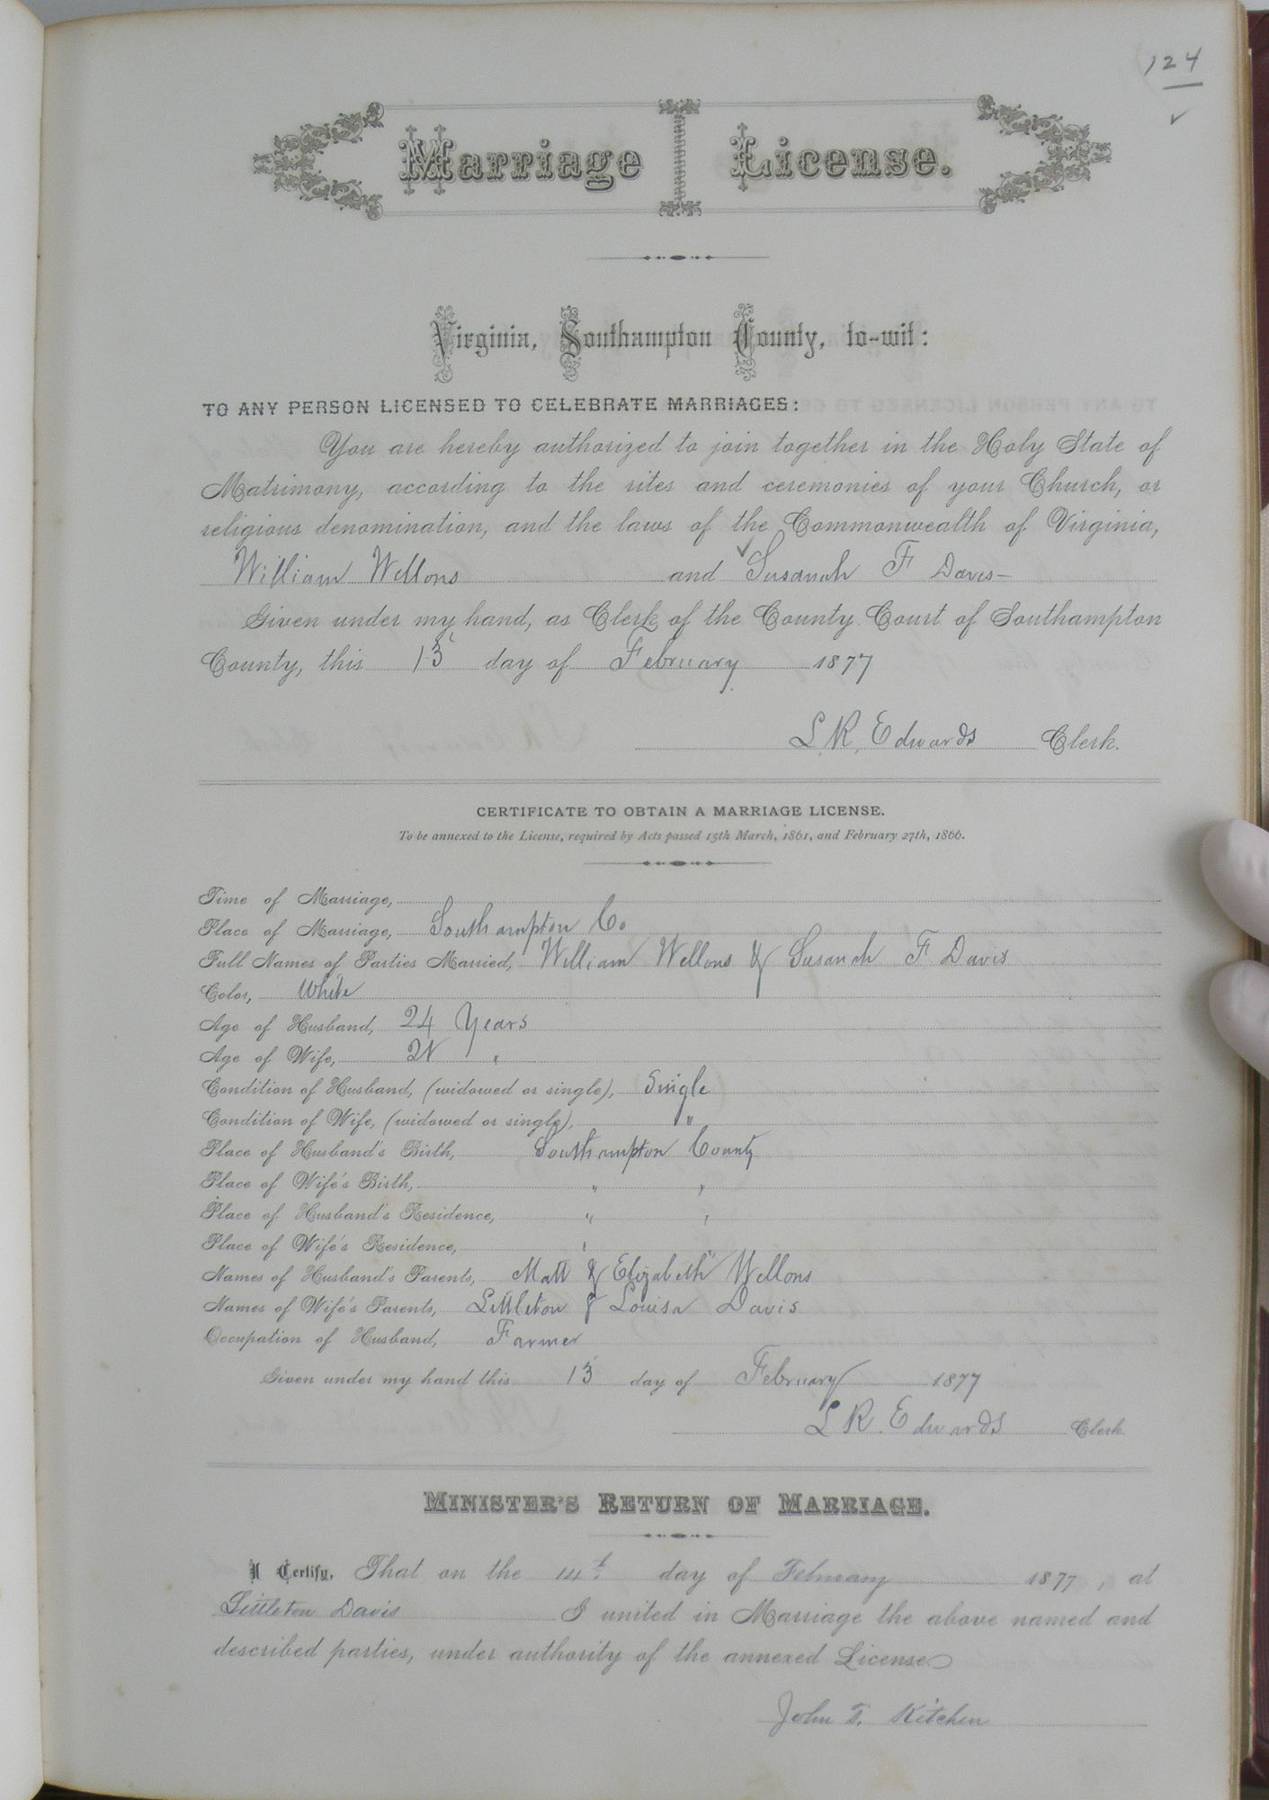 124
Marriage License.
Virginia, Southampton County, to-wit:
TO ANY PERSON LICENSED TO CELEBRATE MARRIAGES:
You are hereby authorized to join together in the Holy State of
Matrimony, according to the rites and ceremonies of your Church, or
religious denomination, and the laws of the Commonwealth of Virginia,
William Wellons and Susanah F Davis
Given under my hand, as Clerk of the County Court of Southampton
County, this 13 day of February 1877
L. R. Edwards Clerk.
CERTIFICATE TO OBTAIN A MARRIAGE LICENSE.
To be annexed to the License, required by Acts passed 15th March, 1861, and February 27th, 1866.
Time of Marriage,
Place of Marriage, Southampton Co
Full Names of Parties Married, William Wellons & Susanah F Davis
Color, White
Age of Husband, 24 Years
Age of Wife, "
Condition of Husband, (widowed or single), Single
Condition of Wife, (widowed or single), "
Place of Husband's Birth, Southampton County
Place of Wife's Birth, " "
Place of Husband's Residence, " "
Place of Wife's Residence, " "
Names of Husband's Parents, Matt & Elizabeth Wellons
Names of Wife's Parents, Littleton & Louisa Davis
Occupation of Husband, Farmer
Given under my hand this 13 day of February 1877
L R. Edwards Clerk.
MINISTER'S RETURN OF MARRIAGE.
I Certify, That on the 14th day of February 1877, at
Littleton Davis I united in Marriage the above named and
described parties, under authority of the annexed License.
John T. Kitchen